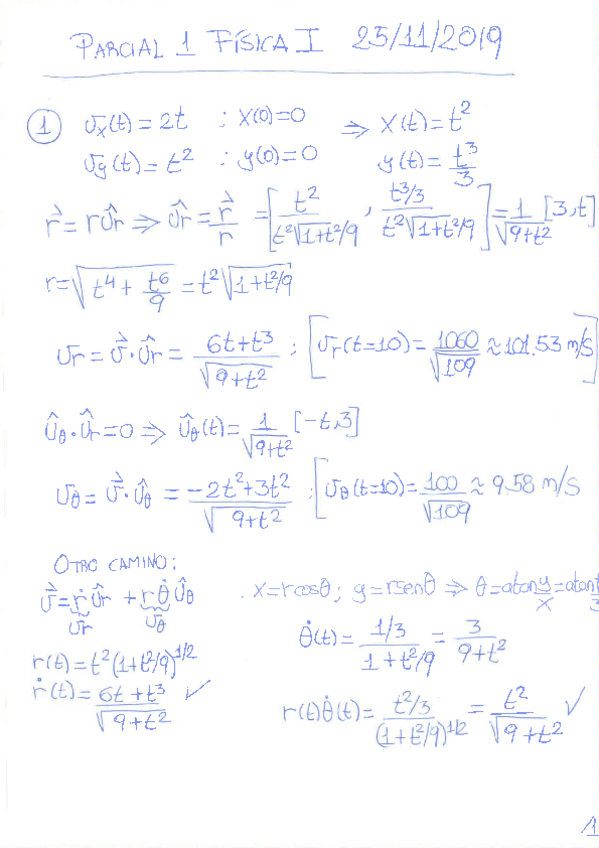 PARCIAL 1 FÍSICA I 25/11/2019
① v_x(t) = 2t ; x(0)=0 ⇒ x(t) = t²
v_y(t) = t² ; y(0)=0 y(t) = t³/3
r⃗ = r û_r ⇒ û_r = r⃗/r = [t²/(t²√(1+t²/9)), (t³/3)/(t²√(1+t²/9))] = 1/√(9+t²) [3,t]
r = √(t⁴ + t⁶/9) = t²√(1+t²/9)
v_r = v⃗·û_r = (6t+t³)/√(9+t²) ; [v_r(t=10) = 1060/√109 ≈ 101.53 m/s]
û_θ·û_r = 0 ⇒ û_θ(t) = 1/√(9+t²) [-t,3]
v_θ = v⃗·û_θ = (-2t²+3t²)/√(9+t²) ; [v_θ(t=10) = 100/√109 ≈ 9.58 m/s
OTRO CAMINO:
v⃗ = ṙ û_r + r θ̇ û_θ
v_r v_θ
x = r cosθ ; y = r senθ ⇒ θ = atan y/x = atan t/3
θ̇(t) = (1/3)/(1+t²/9) = 3/(9+t²)
r(t) = t²(1+t²/9)^1/2
ṙ(t) = (6t+t³)/√(9+t²) ✓
r(t)θ̇(t) = (t²/3)/(1+t²/9)^1/2 = t²/√(9+t²) ✓
1